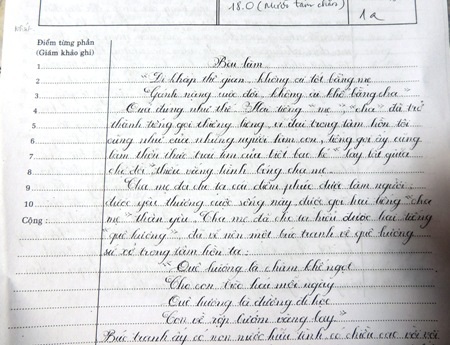 18.0 (Mười tám chẵn)
1a
Điểm từng phần
(Giám khảo ghi)
1
Bài làm
2
"Đi khắp thế gian, không ai tốt bằng mẹ
3
Gánh nặng cuộc đời, không ai khổ bằng cha"
4
Quả đúng như thế. Hai tiếng "mẹ", "cha" đã trở
5
thành tiếng gọi thiêng liêng, vĩ đại trong tâm hồn tôi
6
cũng như của những người làm con, tiếng gọi ấy cũng
7
làm thổn thức trái tim của biết bao kẻ
8
che đời", thiếu vắng hình bóng cha mẹ.
9
Cha mẹ đã cho ta cái diễm phúc được làm người;
10
được yêu thương cuộc sống này, được gọi hai tiếng "cha
Cộng :
mẹ" thân yêu. Cha mẹ đã cho ta hiểu được hai tiếng
"quê hương", đã vẽ nên một bức tranh về quê hương
trong tâm hồn ta:
"Quê hương là chùm khế ngọt
Cho con trèo hái mỗi ngày
Quê hương là đường đi học
Con về rợp bướm vàng bay"
Bức tranh ấy có non nước hữu tình, có chiều cao vời vợi